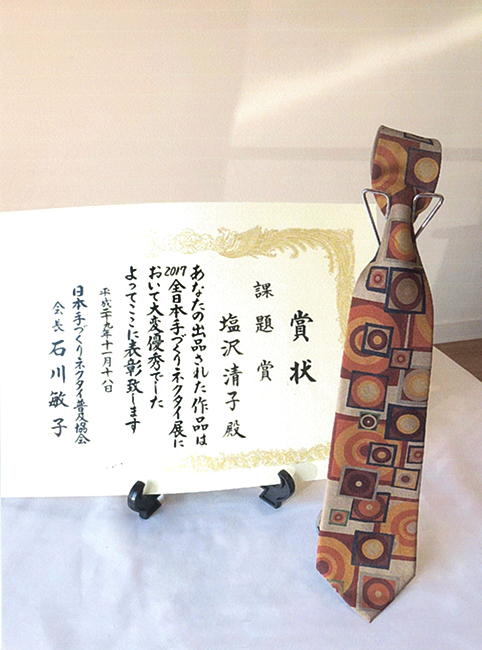 賞状
課題賞
塩沢清子殿
あなたの出品された作品は
2017全日本手づくりネクタイ展に
おいて大変優秀でした
よってここに表彰致します
平成二十九年十一月十八日
日本手づくりネクタイ普及協会
会長 石川敏子